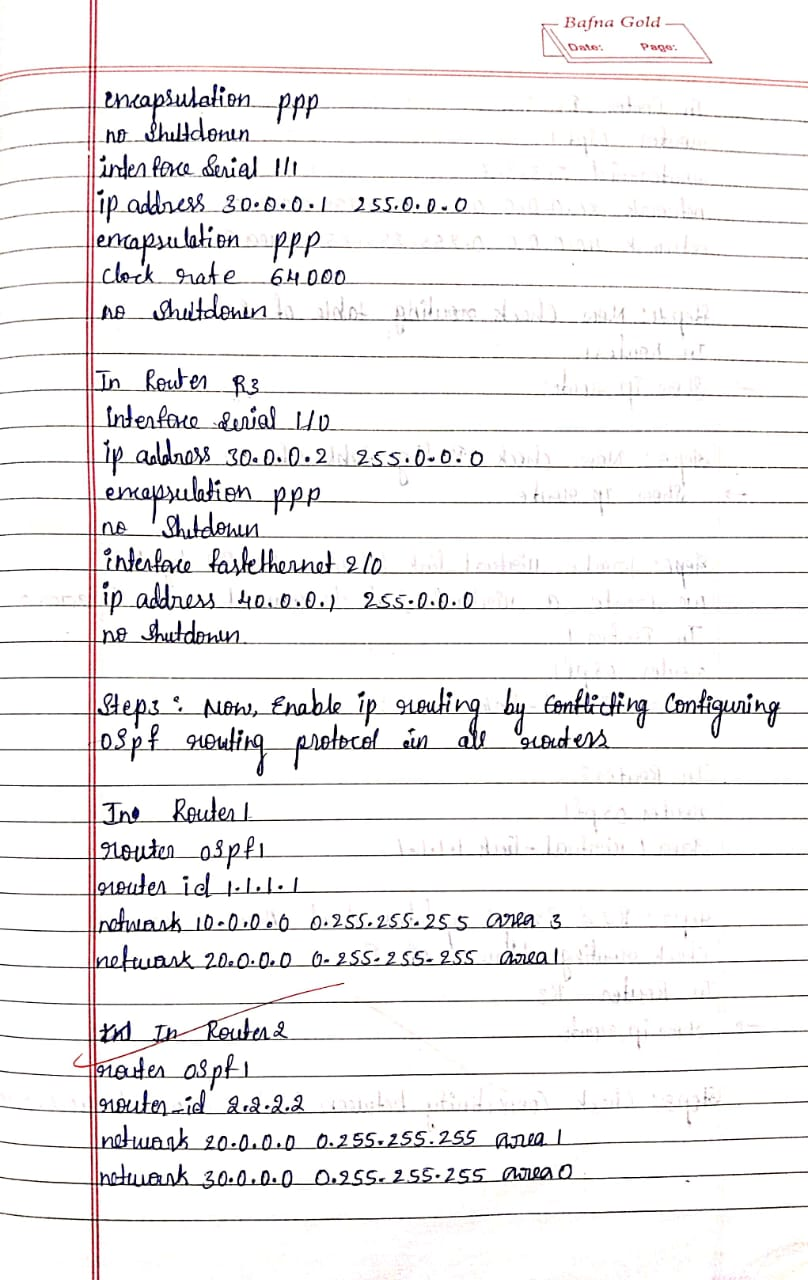 Bafna Gold
Date: Page:
encapsulation ppp
no Shutdown
interface Serial 1/1
ip address 30.0.0.1 255.0.0.0
encapsulation ppp
clock rate 64000
no Shutdown
In Router R3
Interface Serial 1/0
ip address 30.0.0.2 255.0.0.0
encapsulation ppp
no Shutdown
interface fastethernet 2/0
ip address 40.0.0.1 255.0.0.0
no Shutdown
Step3: Now, Enable ip routing by Conflicting Configuring
OSpf routing protocol in all routers
In Router 1
router ospf 1
router id 1.1.1.1
network 10.0.0.0 0.255.255.255 area 3
network 20.0.0.0 0.255.255.255 area 1
In Router 2
router ospf 1
router-id 2.2.2.2
network 20.0.0.0 0.255.255.255 area 1
network 30.0.0.0 0.255.255.255 area 0